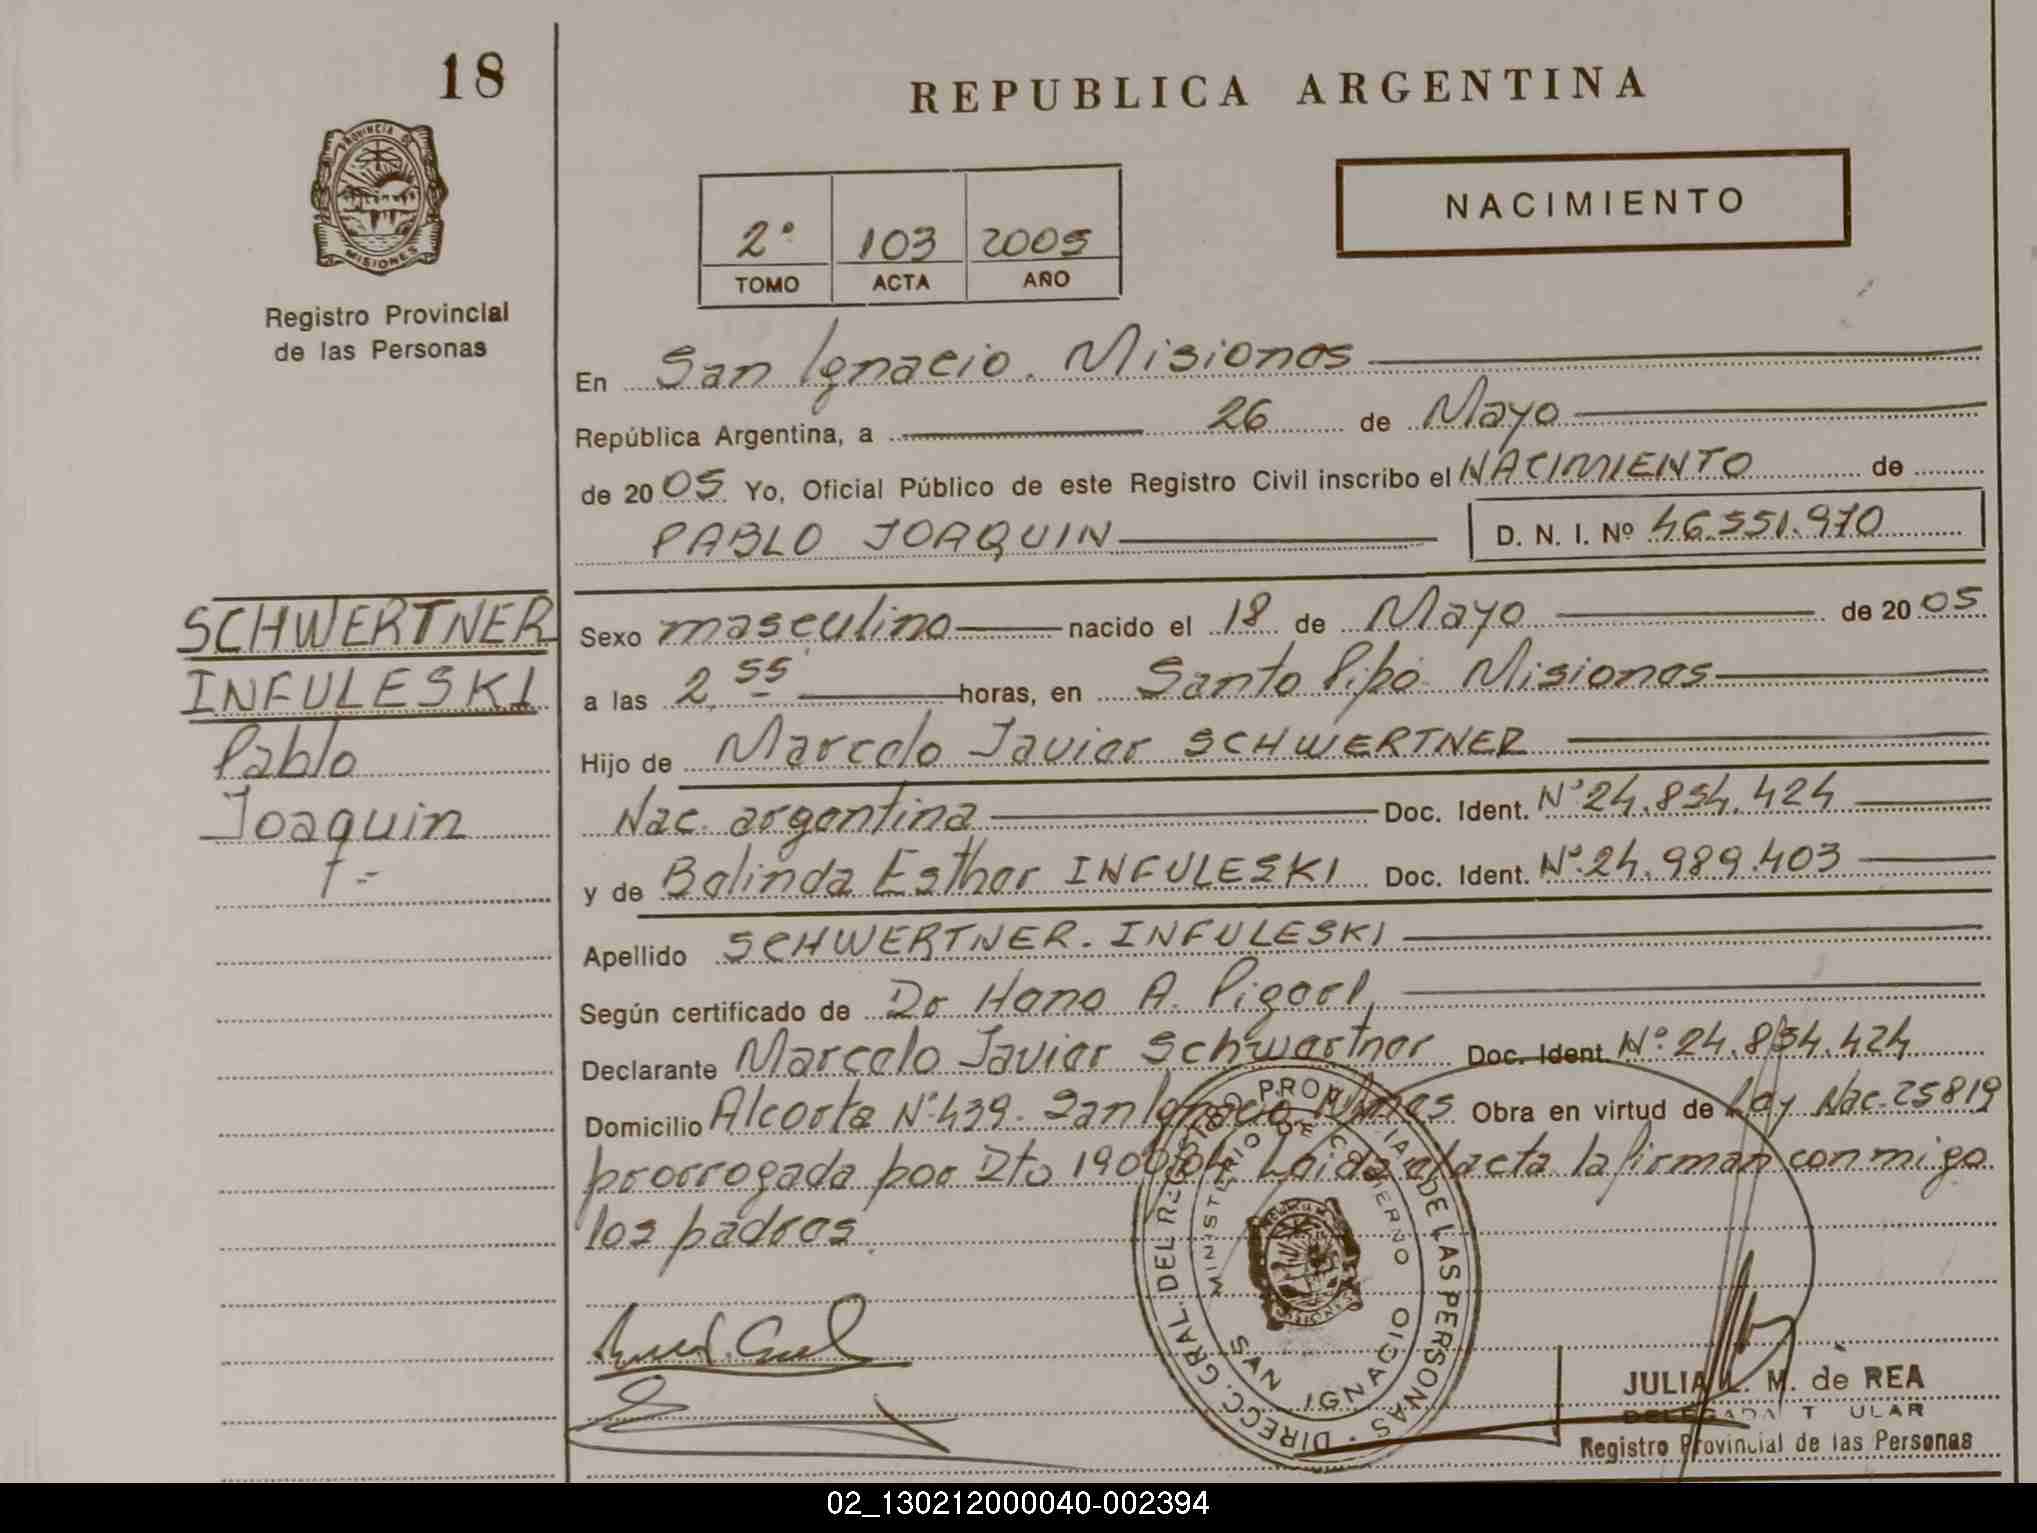 18
REPUBLICA ARGENTINA
PROVINCIA DE
MISIONES
Registro Provincial
de las Personas
NACIMIENTO
2º 103 2005
TOMO ACTA AÑO
En San Ignacio. Misiones
República Argentina, a 26 de Mayo
de 2005 Yo, Oficial Público de este Registro Civil inscribo el NACIMIENTO de
PABLO JOAQUIN D. N. I. Nº 46.551.970
SCHWERTNER
INFULESKI
Pablo
Joaquin
Sexo masculino nacido el 18 de Mayo de 2005
a las 2,55 horas, en Santo Pipó Misiones
Hijo de Marcelo Javier SCHWERTNER
Nac. argentina Doc. Ident. Nº 24.854.424
y de Belinda Esther INFULESKI Doc. Ident. Nº 24.989.403
Apellido SCHWERTNER. INFULESKI
Según certificado de Dr Hano A.
Declarante Marcelo Javier Schwertner Doc. Ident. Nº 24.854.424
Domicilio Alcorta Nº 439. San Ignacio Mnes Obra en virtud de Ley Nac. 25819
prorrogada por Dto 1900/04 Leida el acta la firman conmigo
los padres.
DIRECC. GRAL. DEL REGISTRO PROVINCIAL DE LAS PERSONAS
MINISTERIO DE GOBIERNO
MISIONES
SAN IGNACIO
JULIA L. M. de REA
DELEGADA TITULAR
Registro Provincial de las Personas
02_130212000040-002394